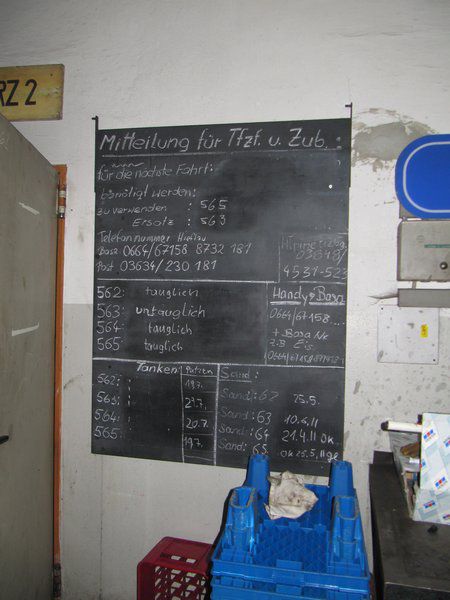 RZ 2
Mitteilung für Tfzf. u. Zub.:
für die nächste Fahrt:
benötigt werden:
zu verwenden : 565
Ersatz : 563
Telefonnummer Hieflau
Basa 0664/67158 8732 181
Post 03634/230 181
4531-523
562: tauglich
563: untauglich
564: tauglich
565: tauglich
Handy + Basa
0664/67158...
+ Basa Nr
z.B Eis
Tanken: Putzen Sand:
562: 19.7.
563: 21.7.
564: 20.7.
565: 19.7.
Sand: 62 25.5.
Sand: 63 10.6.11
Sand: 64 21.4.11 ok
Sand: 65 ok 25.5.11